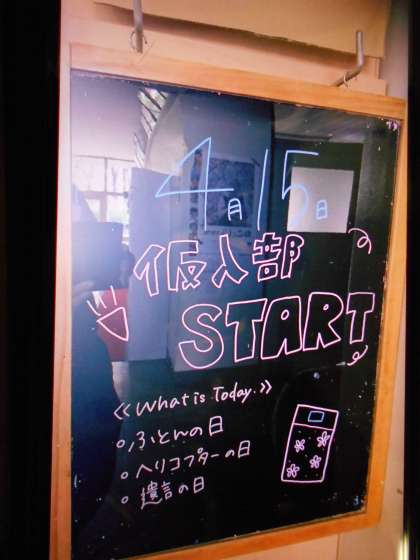 4月15日
仮入部
START
≪What is Today.≫
○ふとんの日
○ヘリコプターの日
○遺言の日